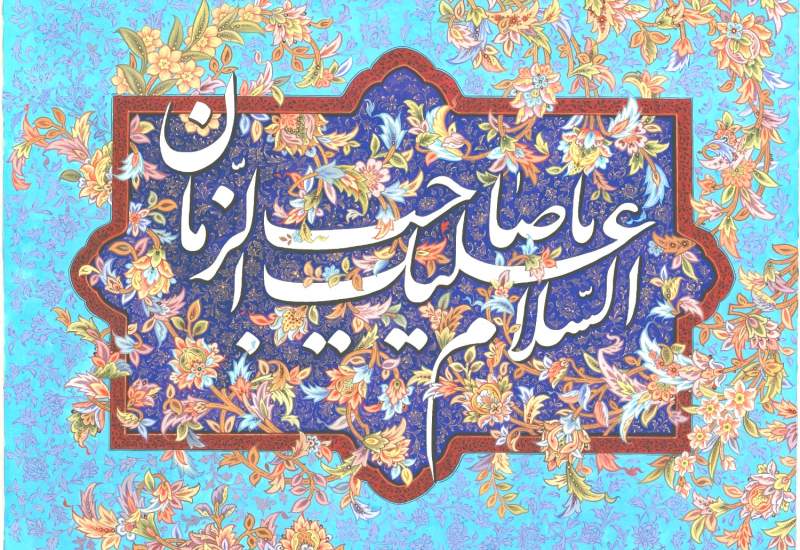 السّلام علیک یا صاحب الزّمان